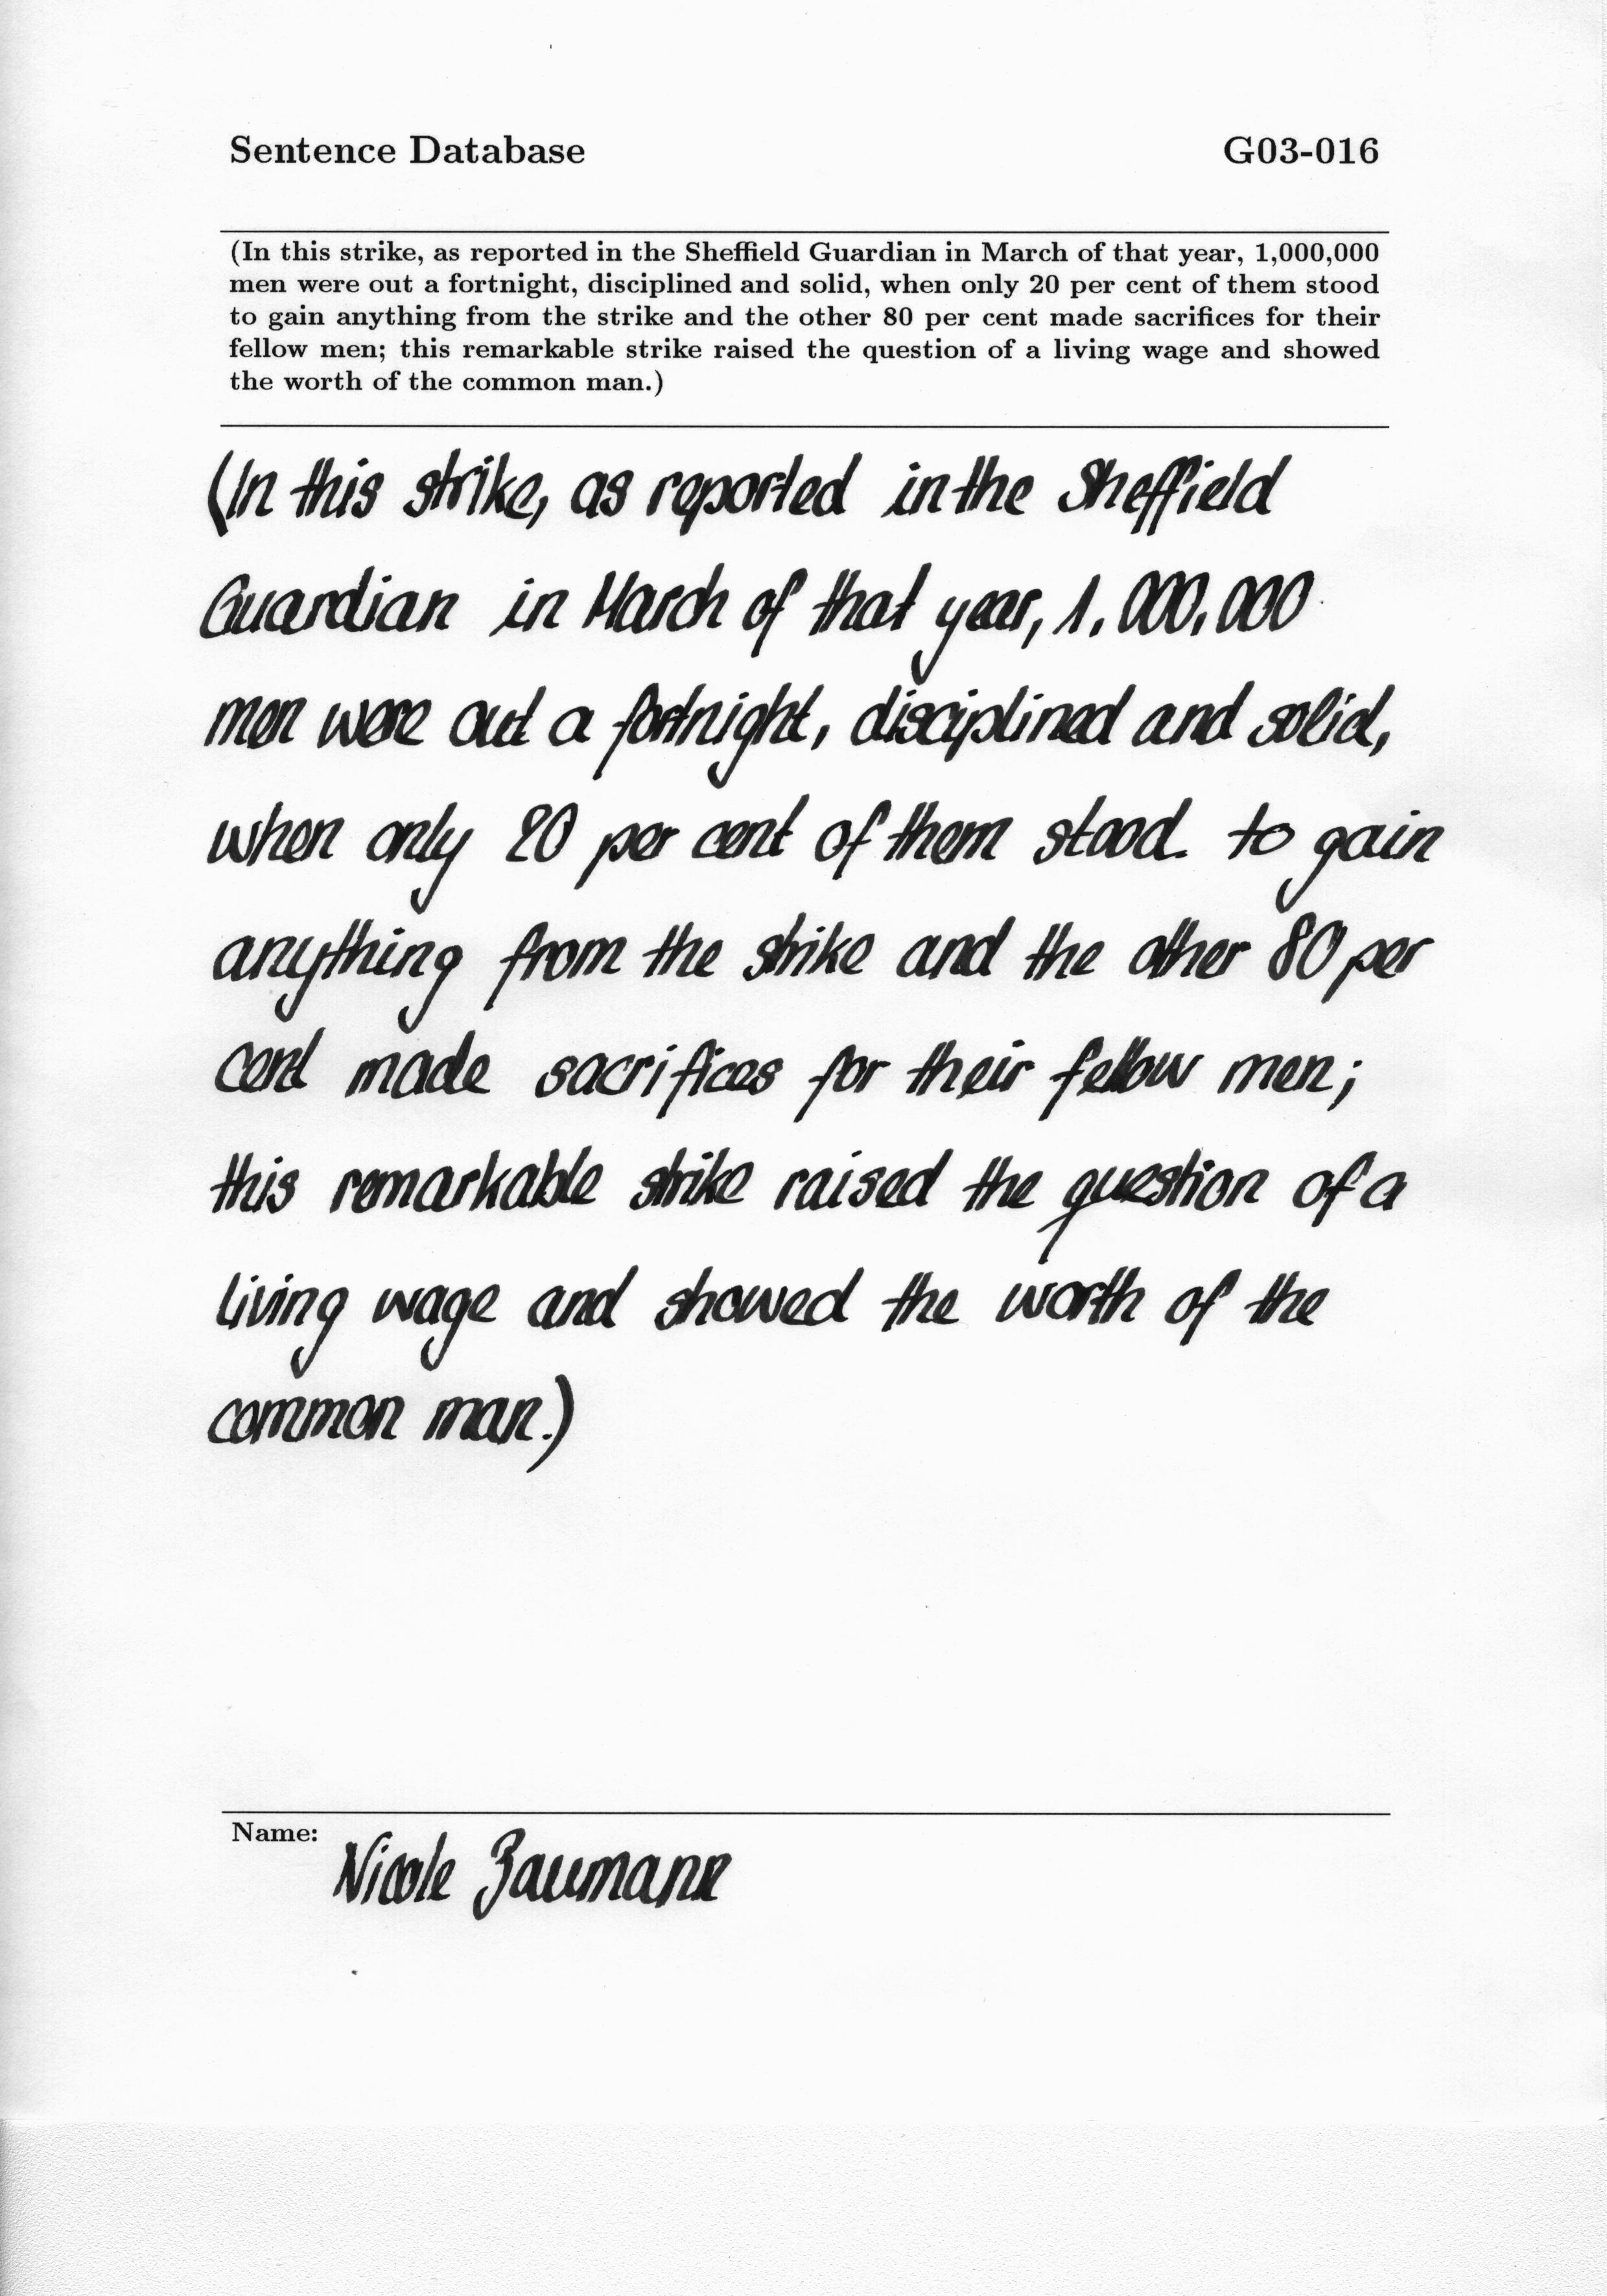 Sentence Database G03-016
(In this strike, as reported in the Sheffield Guardian in March of that year, 1,000,000
men were out a fortnight, disciplined and solid, when only 20 per cent of them stood
to gain anything from the strike and the other 80 per cent made sacrifices for their
fellow men; this remarkable strike raised the question of a living wage and showed
the worth of the common man.)
(In this strike, as reported in the Sheffield
Guardian in March of that year, 1.000,000
men were out a fortnight, disciplined and solid,
when only 20 per cent of them stood. to gain
anything from the strike and the other 80 per
cent made sacrifices for their fellow men;
this remarkable strike raised the question of a
living wage and showed the worth of the
common man.)
Name: Nicole Baumann